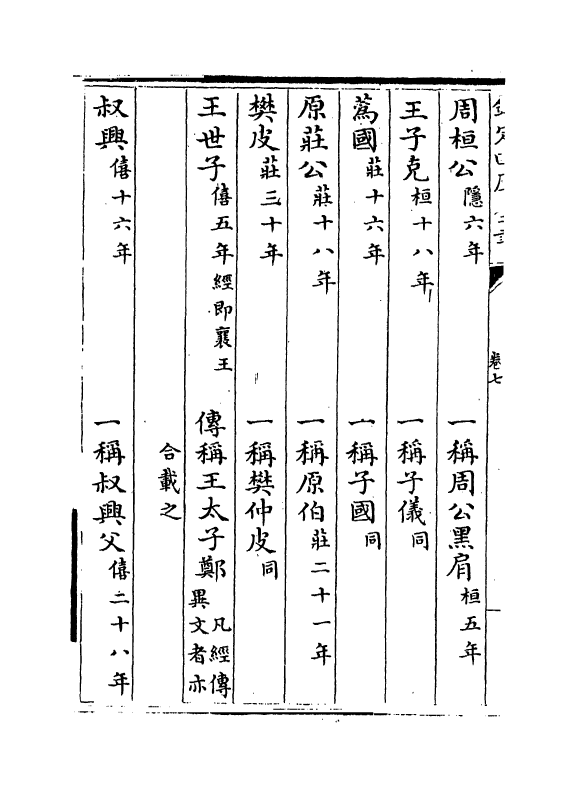 周桓公隱六年 一稱周公黑肩桓五年
王子克桓十八年 一稱子儀同
蔿國莊十六年 一稱子國同
原莊公莊十八年 一稱原伯莊二十一年
樊皮莊三十年 一稱樊仲皮同
王世子僖五年經即襄王 傳稱王太子鄭凡經傳異文者亦
合載之
叔興僖十六年 一稱叔興父僖二十八年
卷七